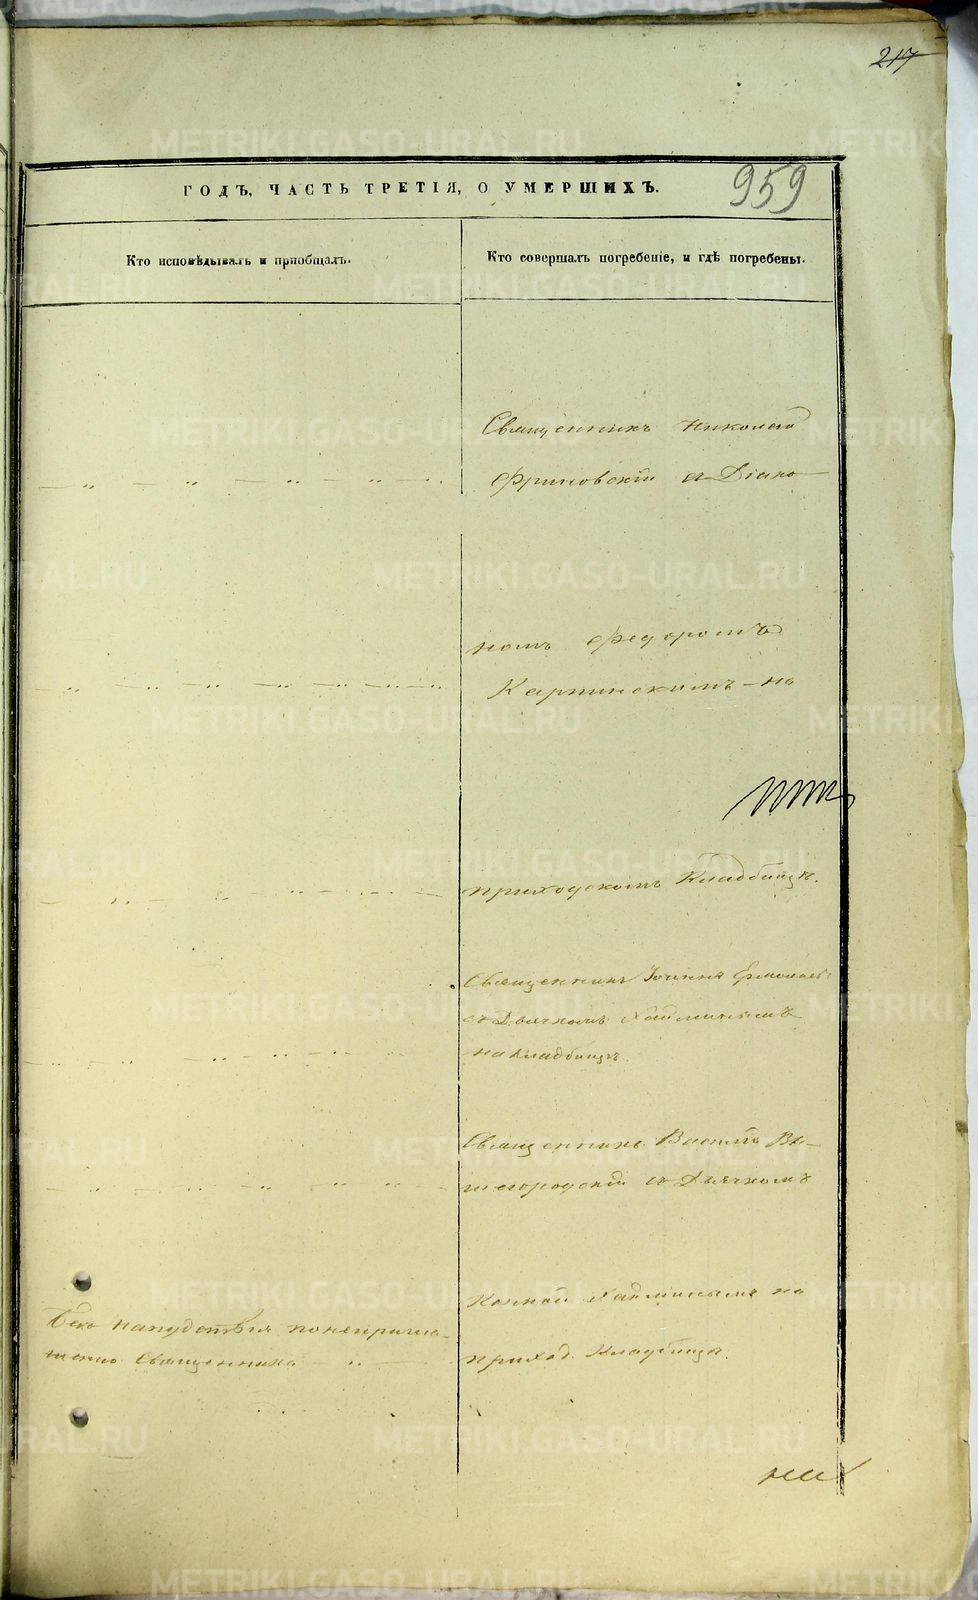 217
959
ГОДЪ, ЧАСТЬ ТРЕТІЯ, О УМЕРШИХЪ.
Кто исповѣдывалъ и пріобщалъ.
Кто совершалъ погребеніе, и гдѣ погребены.
Священникъ Николай
Фриновскій съ Діако
номъ Федоромъ
Карпинскимъ на
приходскомъ Кладбищѣ.
Священникъ Іоаннъ Ермолаевъ
съ Дьячкомъ
на Кладбищѣ
Священникъ Василій Вы-
шегородскій съ Дьячкомъ
на
приход. Кладбищѣ.
Безъ напутствія по непригла-
шенію Священника
METRIKI.GASO-URAL.RU